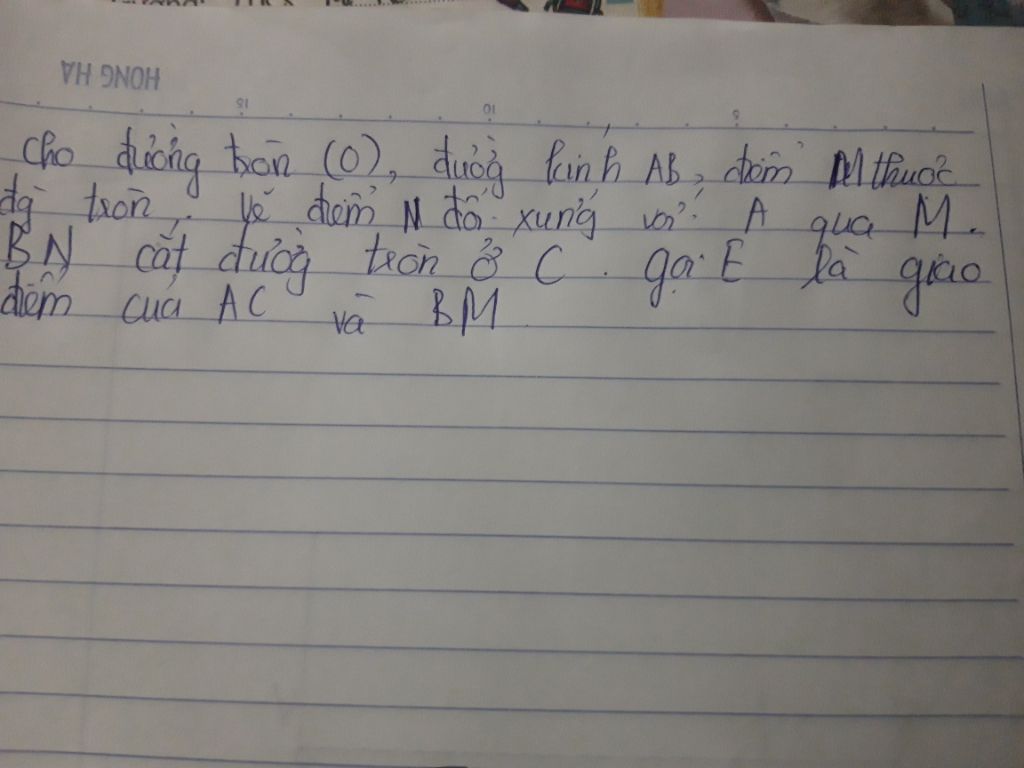 HONG HA
15 10 5
Cho đường tròn (O), đường kính AB, điểm M thuộc
đg tròn. Vẽ điểm N đối xứng với A qua M.
BN cắt đường tròn ở C. gọi E là giao
điểm của AC và BM